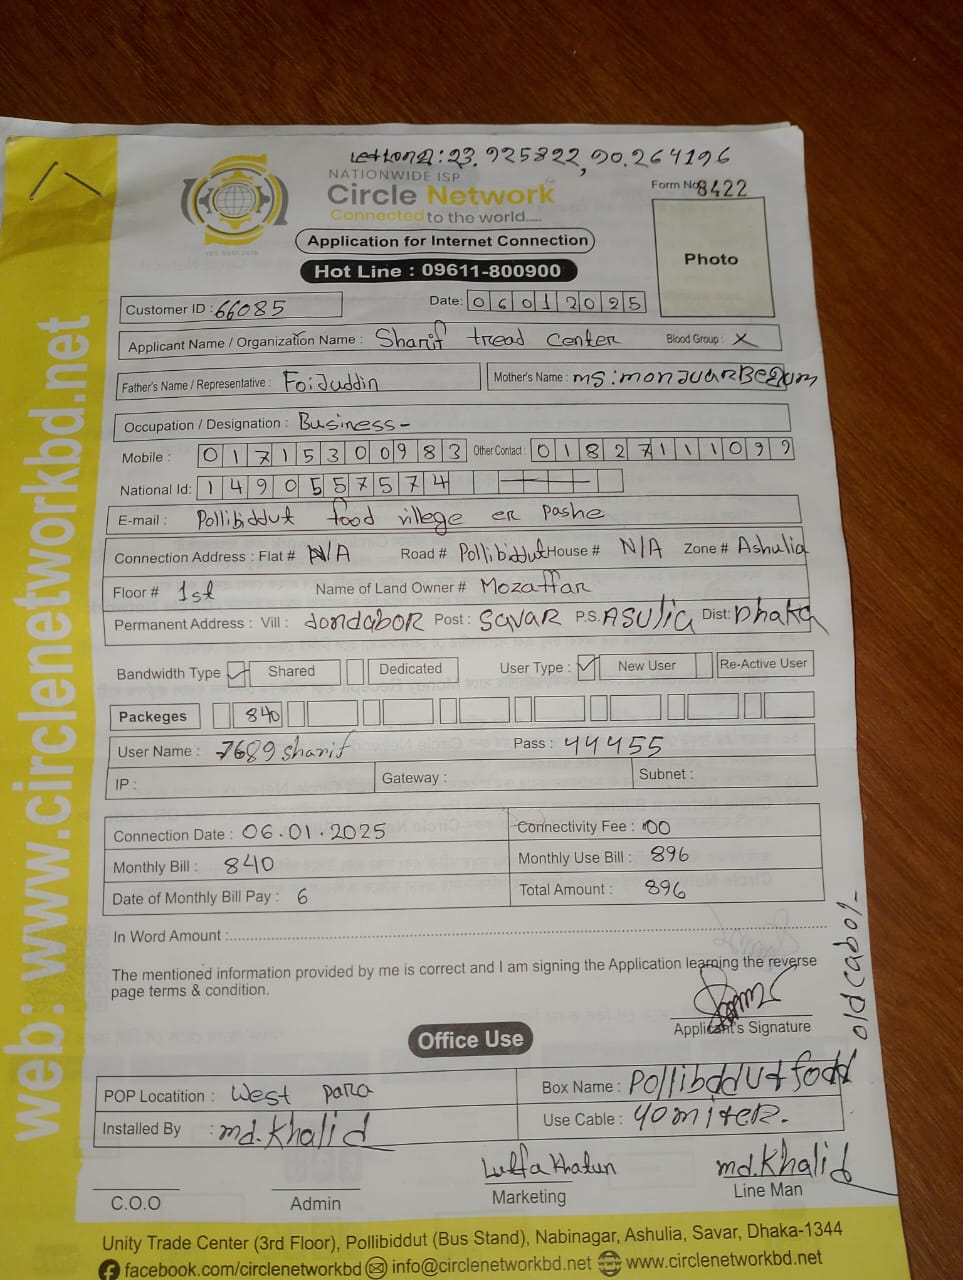 23.925822, 90.264196
NATIONWIDE ISP
Circle Network
Connected to the world.....
Form No 8422
Application for Internet Connection
Hot Line : 09611-800900
Photo
Customer ID : 66085 Date: 06012025
Applicant Name / Organization Name : Sharif tread center Blood Group : X
Father's Name / Representative : Foijuddin Mother's Name : ms: monjuar Begum
Occupation / Designation : Business-
Mobile : 01715300983 Other Contact : 01827111099
National Id: 1490557574
E-mail : Pollibiddut food villege er pashe
Connection Address : Flat # N/A Road # Pollibiddut House # N/A Zone # Ashulia
Floor # 1st Name of Land Owner # Mozaffar
Permanent Address : Vill : dondabor Post : Savar P.S. Asulia Dist: Dhaka
Bandwidth Type Shared Dedicated User Type : New User Re-Active User
Packeges 840
User Name : 7689sharif Pass : 44455
IP : Gateway : Subnet :
Connection Date : 06.01.2025 Connectivity Fee : 00
Monthly Bill : 840 Monthly Use Bill : 896
Date of Monthly Bill Pay : 6 Total Amount : 896
In Word Amount :
The mentioned information provided by me is correct and I am signing the Application learning the reverse
page terms & condition.
Applicant's Signature
old cabol
Office Use
POP Locatition : West para Box Name : Pollibddut food
Installed By : md. Khalid Use Cable : 40 miter.
Lutfa Khatun md. Khalid
C.O.O Admin Marketing Line Man
Unity Trade Center (3rd Floor), Pollibiddut (Bus Stand), Nabinagar, Ashulia, Savar, Dhaka-1344
facebook.com/circlenetworkbd info@circlenetworkbd.net www.circlenetworkbd.net
web: www.circlenetworkbd.net